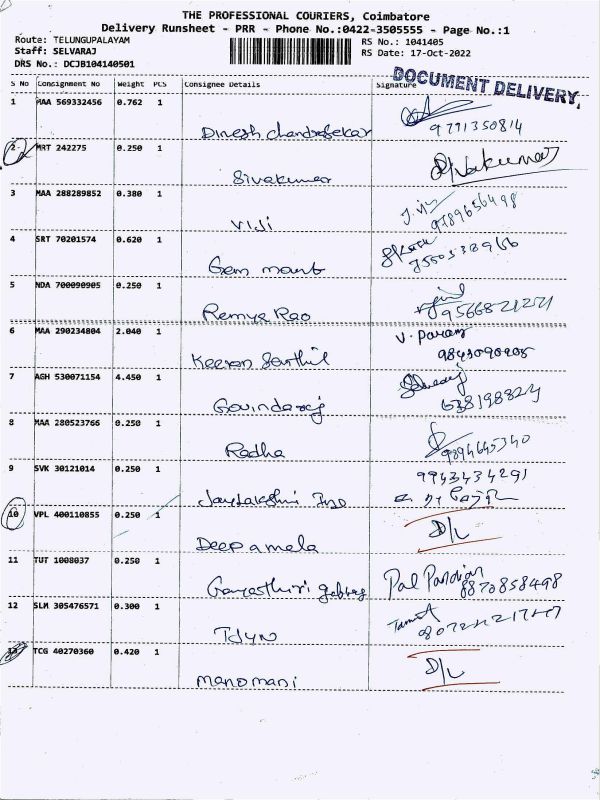 THE PROFESSIONAL COURIERS, Coimbatore
Delivery Runsheet - PRR - Phone No.:0422-3505555 - Page No.:1
Route: TELUNGUPALAYAM
RS No.: 1041405
Staff: SELVARAJ
RS Date: 17-Oct-2022
DRS No.: DCJB104140501
S No Consignment No Weight PCS Consignee Details Signature
DOCUMENT DELIVERY
1 MAA 569332456 0.762 1
Dinesh Chandrasekar 9791350814
2 MRT 242275 0.250 1
Sivakumar Sivakumar
3 MAA 288289852 0.380 1
VIJI 9789656498
4 SRT 70201574 0.620 1
Gem mount
5 NDA 700090905 0.250 1
Remya Rao
6 MAA 290234804 2.040 1 V. Param
Keeran Senthil
7 AGH 530071154 4.450 1
Govindaraj
8 MAA 280523766 0.250 1
Radha 9894645340
9 SVK 30121014 0.250 1 9943434291
10 VPL 400110855 0.250 1 D/L
Deepamela
11 TUT 1008037 0.250 1
Pal Pandian
8870858498
12 SLM 305476571 0.300 1
13 TCG 40270360 0.420 1 D/L
manomani